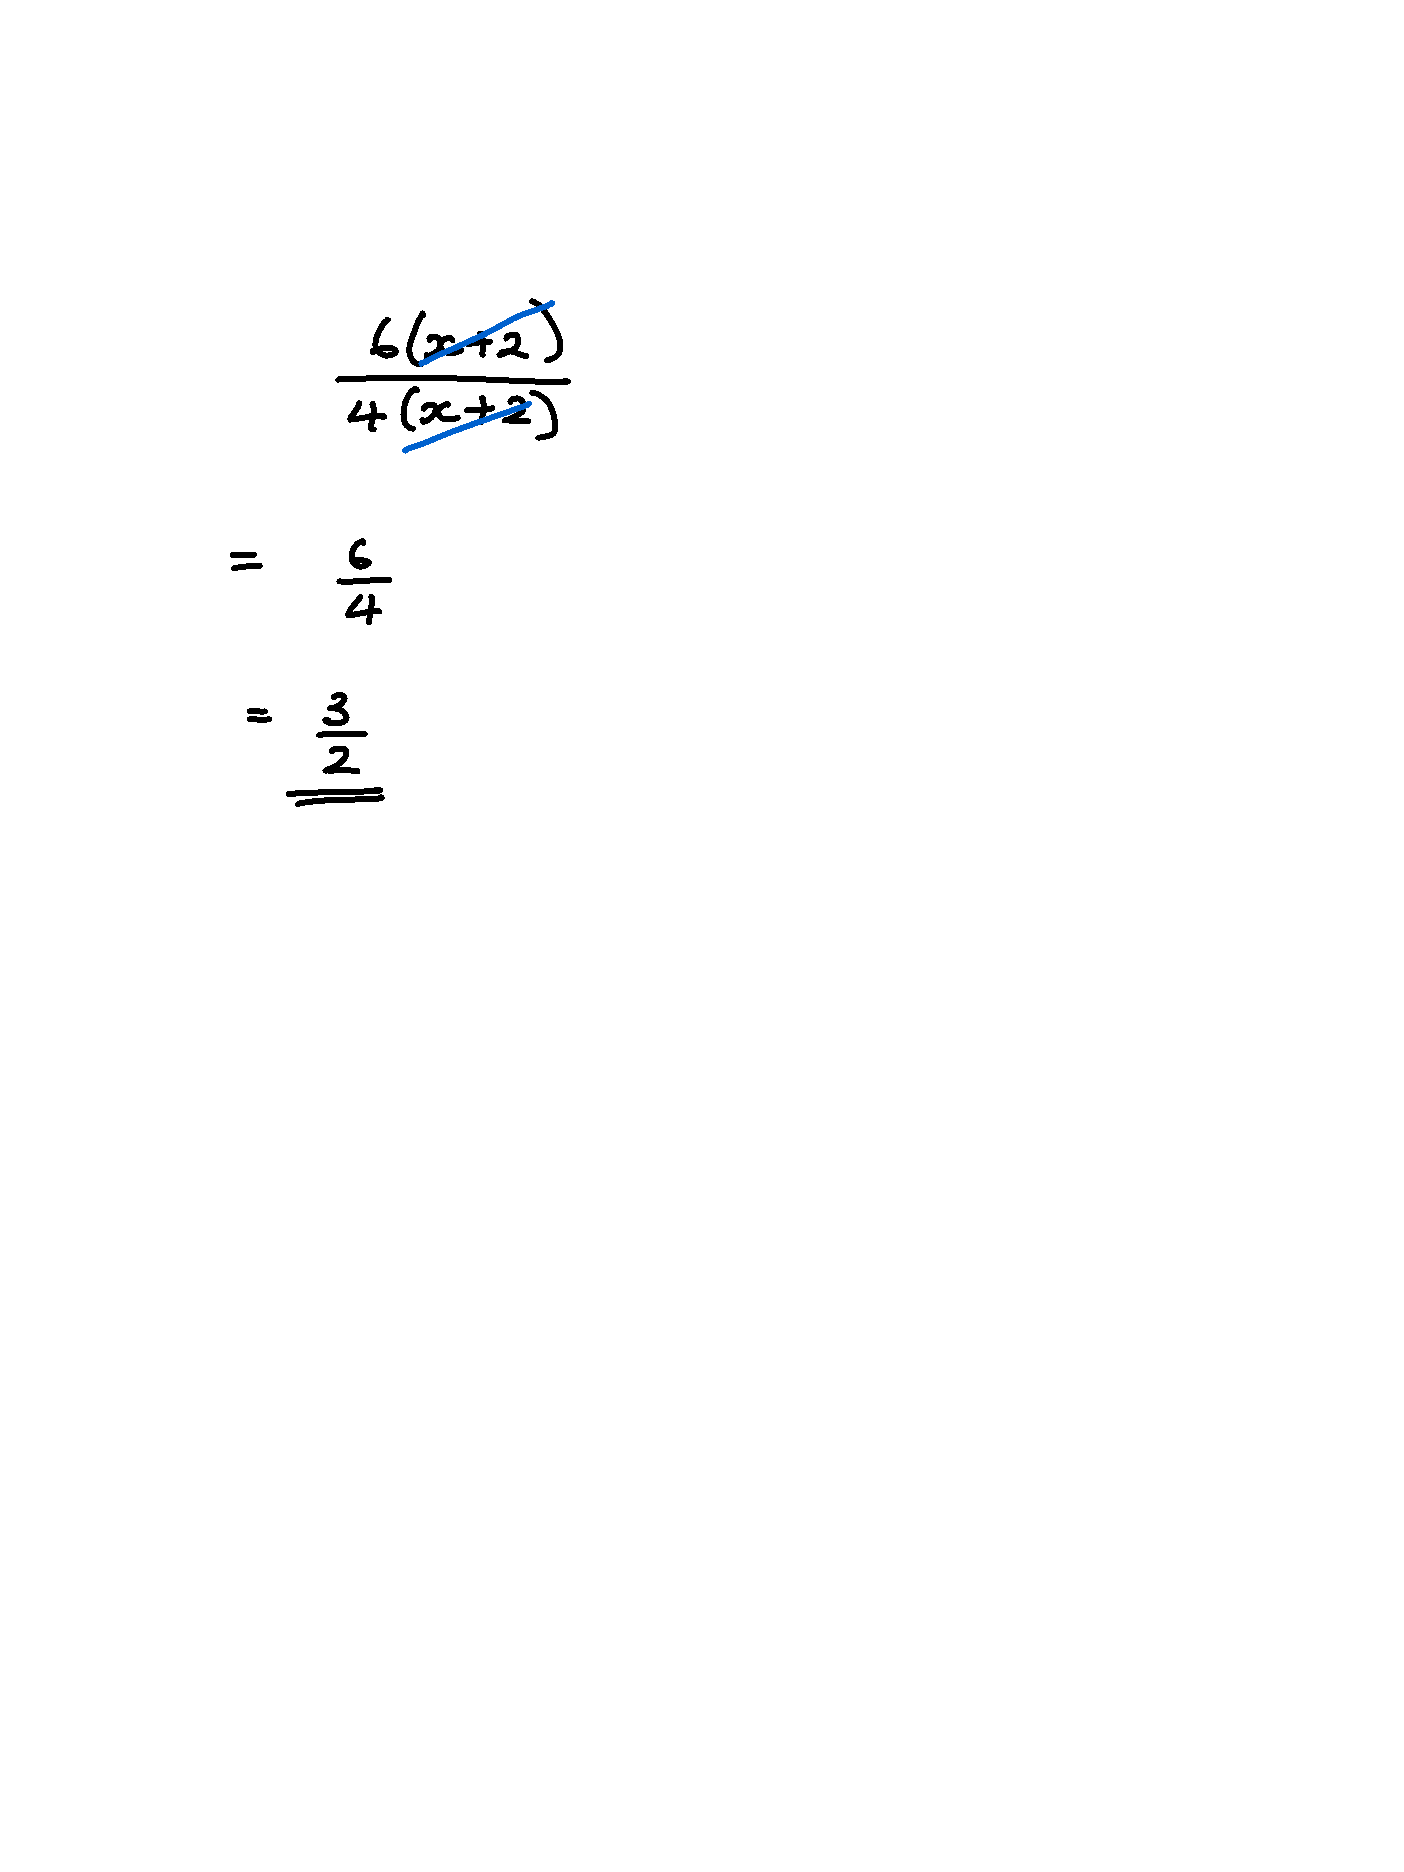 6(x+2)
4(x+2)
= 6
4
= 3
2